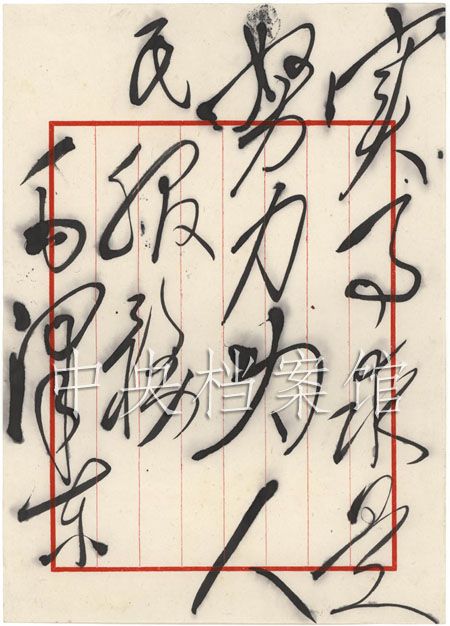 实事求是
努力为人
民服务
毛泽东
中央档案馆